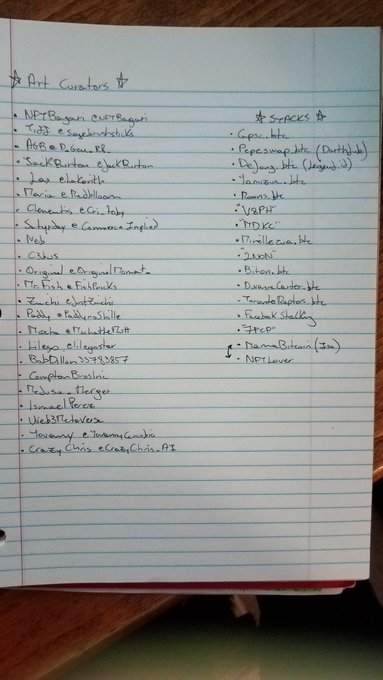 ☆ Art Curators ☆
• NFTBagari @NFTBagari
• Tidd @sagebrushsticks
• AGB @
• JackBurton @JackBurton
• Lax @Lakorith
• Maria @Redblloom
• Clementis @Cri_toby
• Satyrday @Commerce Implied
• Neb
• C3bus
• Original @OriginalMoment_
• Mr. Fish @FishPricks
• Zucchi @JstZuichi
• Paddy @PaddynoShille
• Mocha
• Lilego @lilegostar
• BobDillon33783857
• Compton
• Medusa_Merger
• Ismael Perez
• Web3Metaverse
• Yovanny @YovannyCenobio
• Crazy Chris @CrazyChris_AI
☆ STACKS ☆
• Capsc.btc
• Pepeswap.btc
• DeJong.btc (Legend.id)
• .btc
• .btc
• "V8PH"
• "MDKC"
• .btc
• "2NON"
• Biton.btc
• DwayneCarter.btc
• TorontoRaptors.btc
• Facebook Stacking
• "7FCP"
• MamaBitcoin (Isa)
• NFTLover